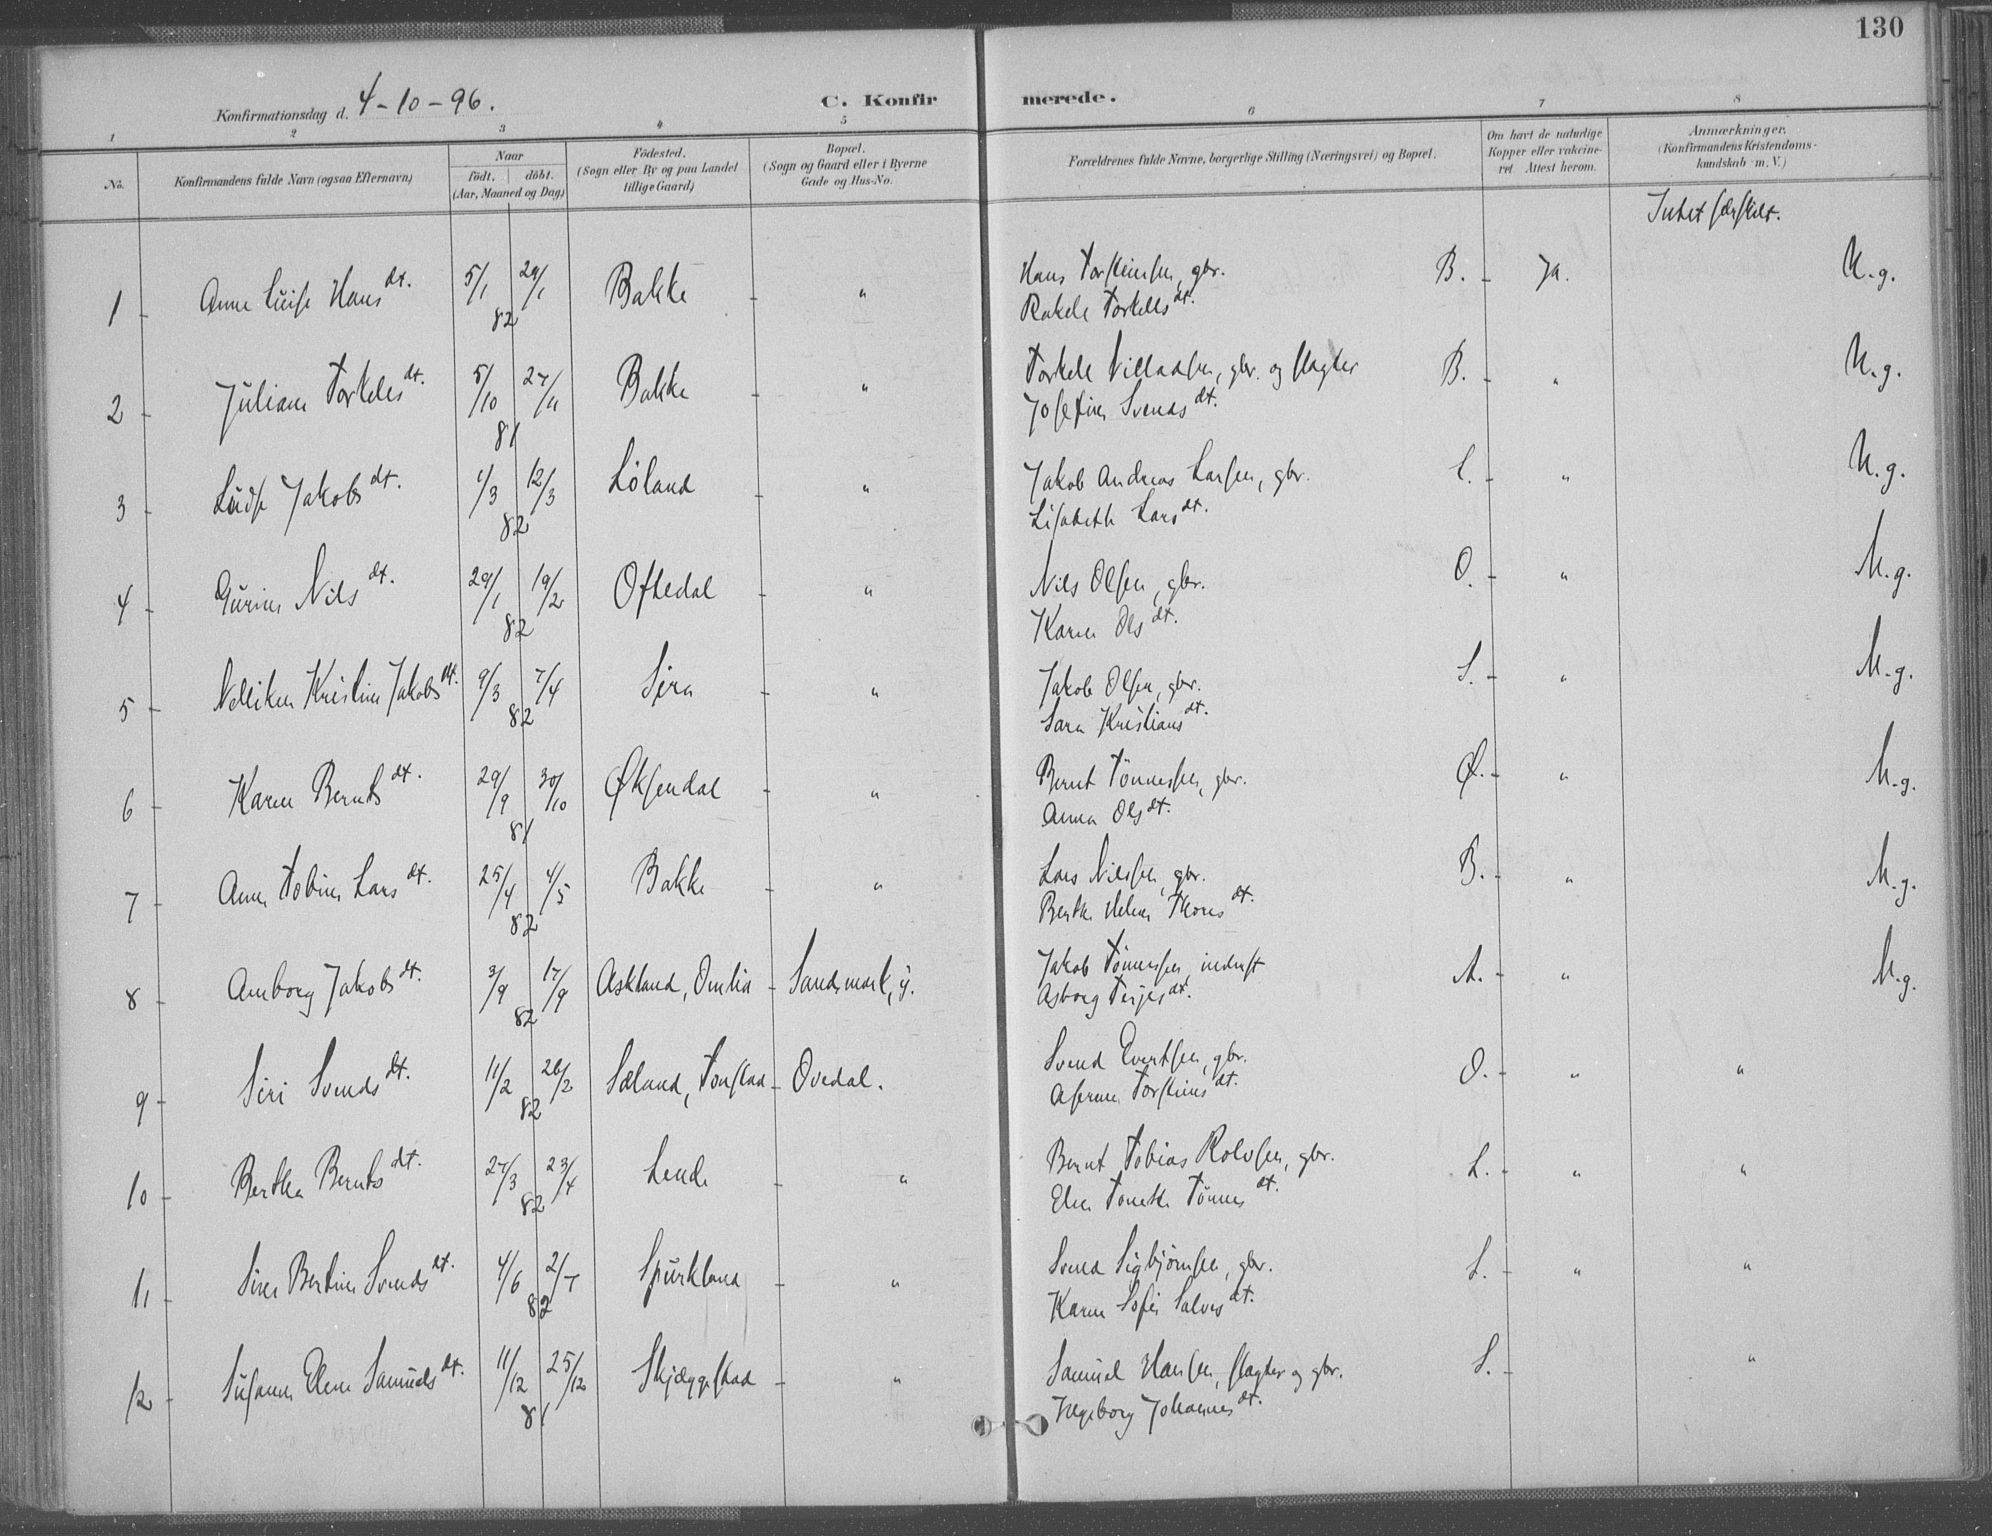 130
Konfirmationsdag d. 4-10-96.
C. Konfirmerede.
1 2 3 4 5 6 7 8
No.
Konfirmandens fulde Navn (ogsaa Efternavn)
Naar
födt. döbt.
(Aar, Maaned og Dag)
Födested.
(Sogn eller By og paa Landet
tillige Gaard)
Bopæl.
(Sogn og Gaard eller i Byerne
Gade og Hus-No.
Forældrenes fulde Navne, borgerlige Stilling (Næringsvei) og Bopæl.
Om havt de naturlige
Kopper eller vakcine-
ret Attest herom.
Anmærkninger.
(Konfirmandens Kristendoms-
kundskab m. V.)
Intet særskilt.
1 - Anne Luise Hans dt. 5/1 29/1 82 Bakke - " Hans Torsteinsen, gbr. B. - Ja. M.g.
Rakele Torkels dt.
2 - Juliane Torkels dt. 5/10 27/11 81 Bakke - " Torkele Villadsen, gbr. og slagter B. - " M.g.
Josefine Svends dt.
3 - Ludse Jakobs dt. 1/3 12/3 82 Löland - " Jakob Andreas Larsen, gbr. L. - " M.g.
Lisabeth Lars dt.
4 - Gurine Nils dt. 29/1 19/2 82 Oftedal - " Nils Olsen, gbr. O. - " M.g.
Karen Ols dt.
5 - Nelliken Kristine Jakobs dt. 9/3 7/4 82 Sira - " Jakob Olsen, gbr. S. - " M.g.
Sara Kristians dt.
6 - Karen Bernts dt. 29/9 30/10 81 Øksendal - " Bernt Tönnessen, gbr. Ø. - " M.g.
Anna Ols dt.
7 - Anne Tobine Lars dt. 25/4 4/5 82 Bakke - " Lars Nilssen, gbr. B. - " M.g.
Berthe Helene Thores dt.
8 - Anborg Jakobs dt. 3/9 17/9 82 Askland, Omlia - Sandsmark, y. Jakob Tönnessen, inderst A. - " M.g.
Asborg Terjes dt.
9 - Siri Svends dt. 11/2 26/2 82 Sæland, Tonstad - Ovedal. Svend Evertsen, gbr. O. - " "
Aserine Torsteins dt.
10 - Bertha Bernts dt. 27/3 23/4 82 Lende - " Bernt Tobias Rolvsen, gbr. L. - " "
Elen Tonette Tönnes dt.
11 - Siren Bertine Svends dt. 4/6 2/7 82 Spurkland - " Svend Sigbjörnsen, gbr. S. - " "
Karen Sofie Salves dt.
12 - Susanne Elene Samuels dt. 11/12 25/12 81 Skjæggestad - " Samuel Hansen, slagter og gbr. S. - "
Ingeborg Johannes dt.